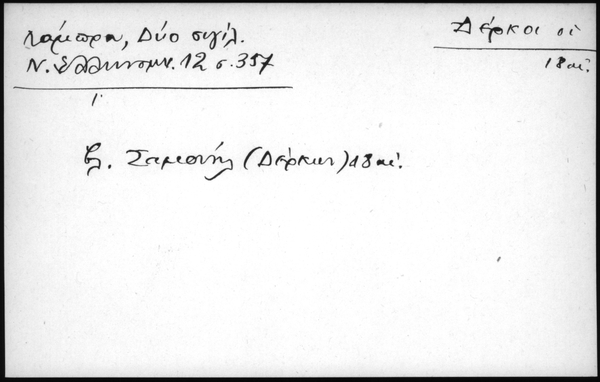 Λάμπρου, Δύο σιγίλ.
Ν. Ἑλληνομν. 12 σ. 357
Δέρκοι οἱ
18 αἰ.
1
βλ. Σαμουήλ (Δέρκων) 18 αἰ.